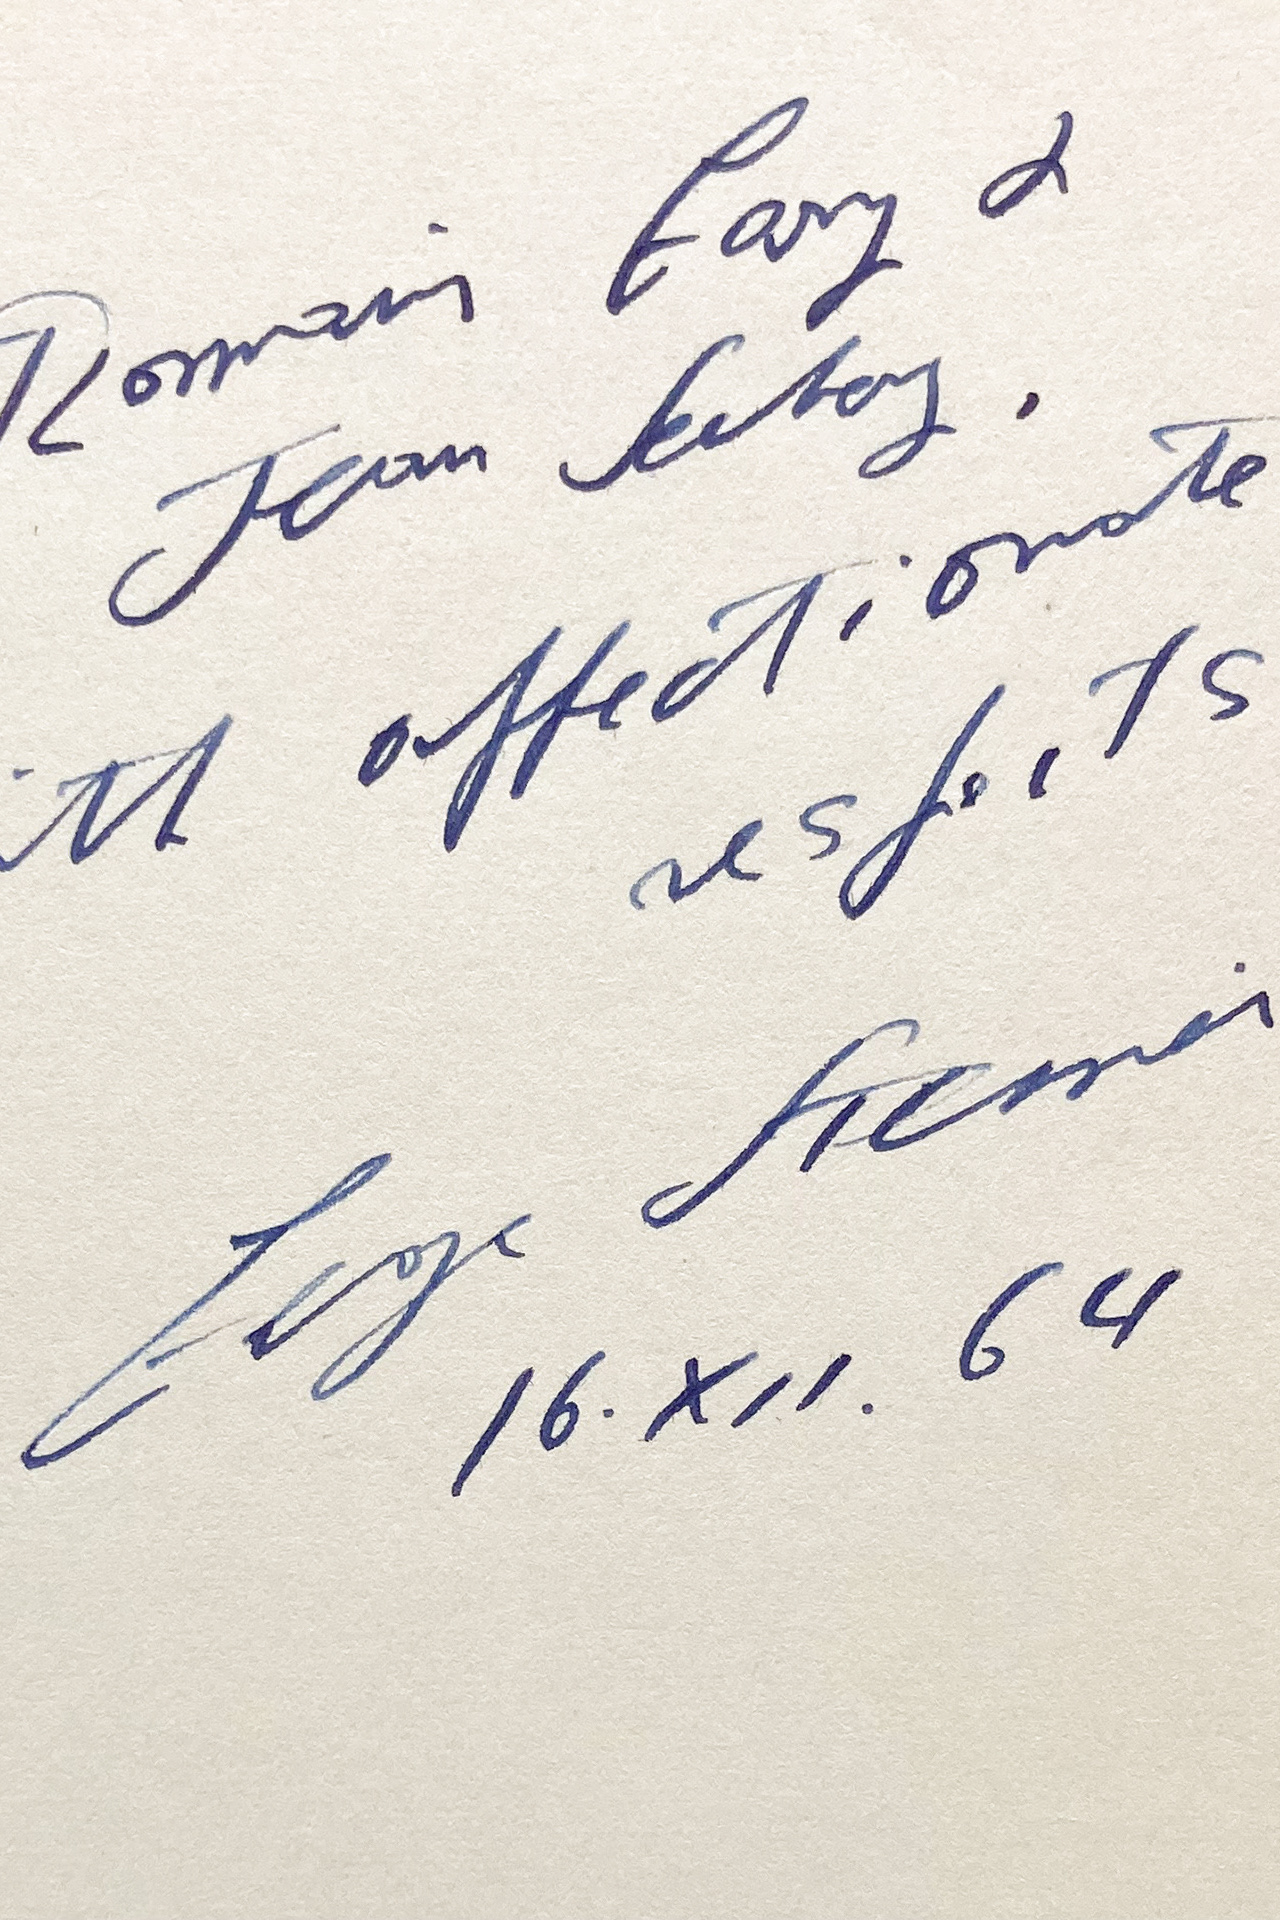 Romain Gary &
Jean Seberg.
ith affectionate
respects
16.XII.64